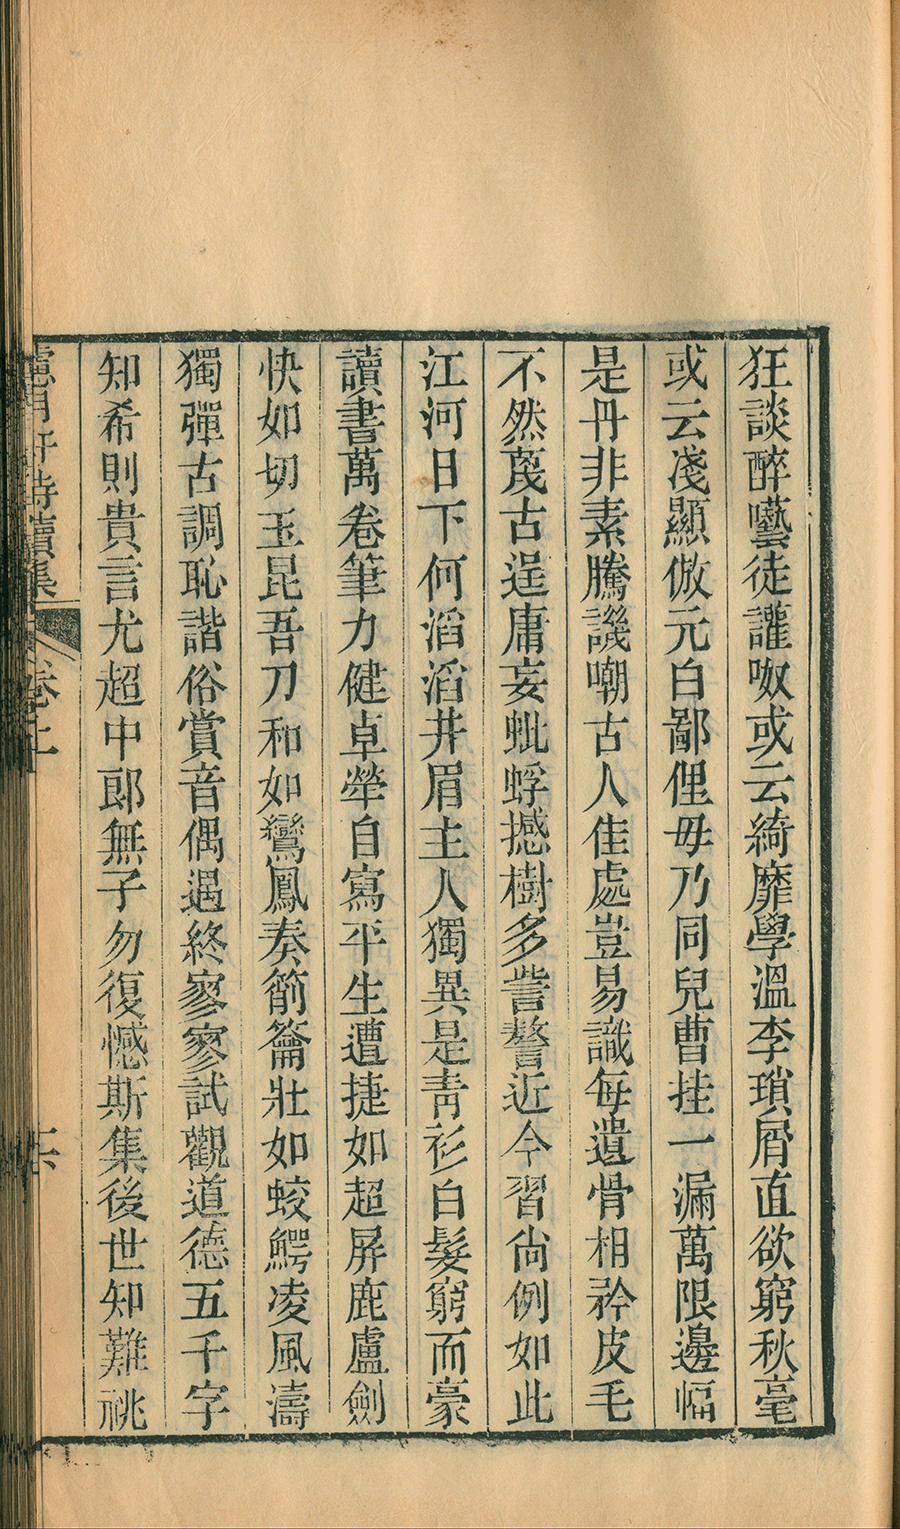 狂談醉囈徒讙呶或云綺靡學溫李瑣屑直欲窮秋毫
或云淺顯倣元白鄙俚毋乃同兒曹挂一漏萬限邊幅
是丹非素騰譏嘲古人佳處豈易識每遺骨相矜皮毛
不然蔑古逞庸妄蚍蜉撼樹多訾謷近今習尙例如此
江河日下何滔滔井眉主人獨異是靑衫白髮窮而豪
讀書萬卷筆力健卓犖自寫平生遭捷如超屏鹿盧劍
快如切玉昆吾刀和如鸞鳳奏簫籥壯如蛟鰐凌風濤
獨彈古調恥諧俗賞音偶遇終寥寥試觀道德五千字
知希則貴言尤超中郎無子勿復憾斯集後世知難祧
月軒詩續集 卷上